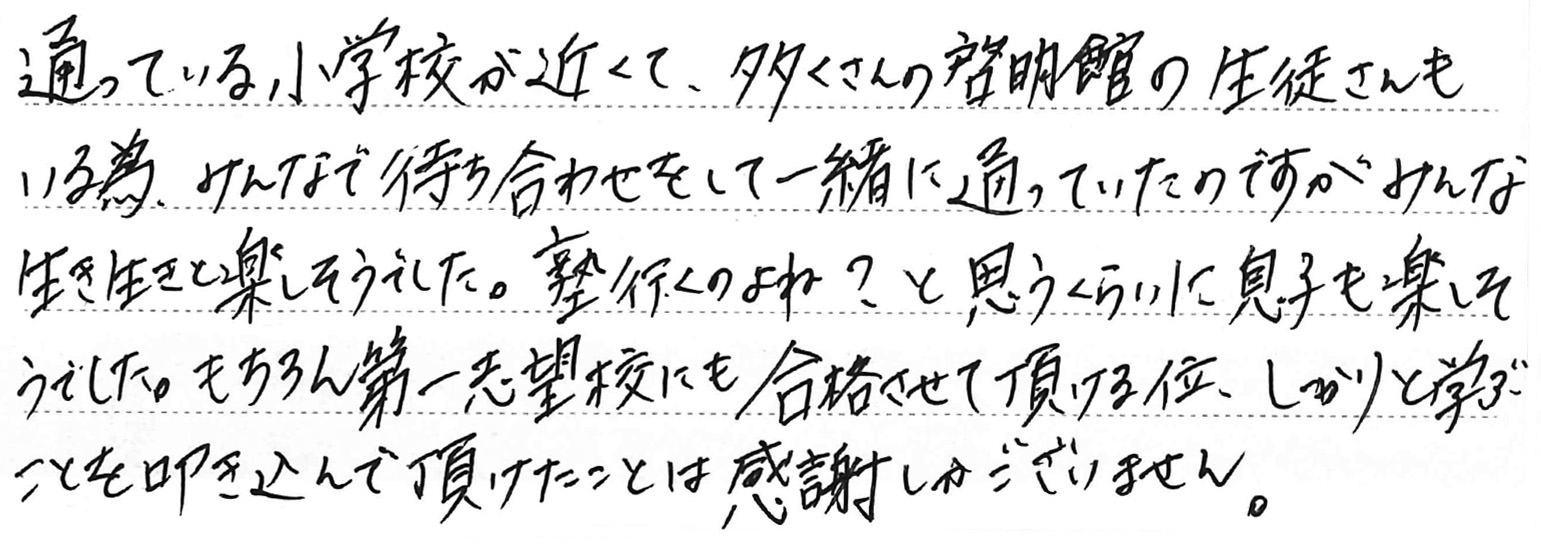 通っている小学校が近くて、多くさんの啓明館の生徒さんも
いる為、みんなで待ち合わせをして一緒に通っていたのですがみんな
生き生きと楽しそうでした。塾行くのよね？と思うくらいに息子も楽しそ
うでした。もちろん第一志望校にも合格させて頂ける位、しっかりと学ぶ
ことを叩き込んで頂けたことは感謝しかございません。